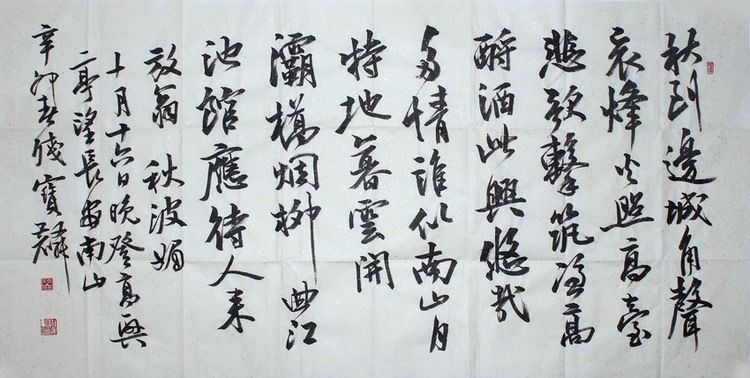 秋到邊城角聲
哀烽火照高臺
悲歌擊筑憑高
酹酒此興悠哉
多情誰似南山月
特地暮雲開
灞橋烟柳 曲江
池館應待人来
放翁 秋波媚
十月十六日晚登高興
亭望長安南山
辛卯春 寶麟